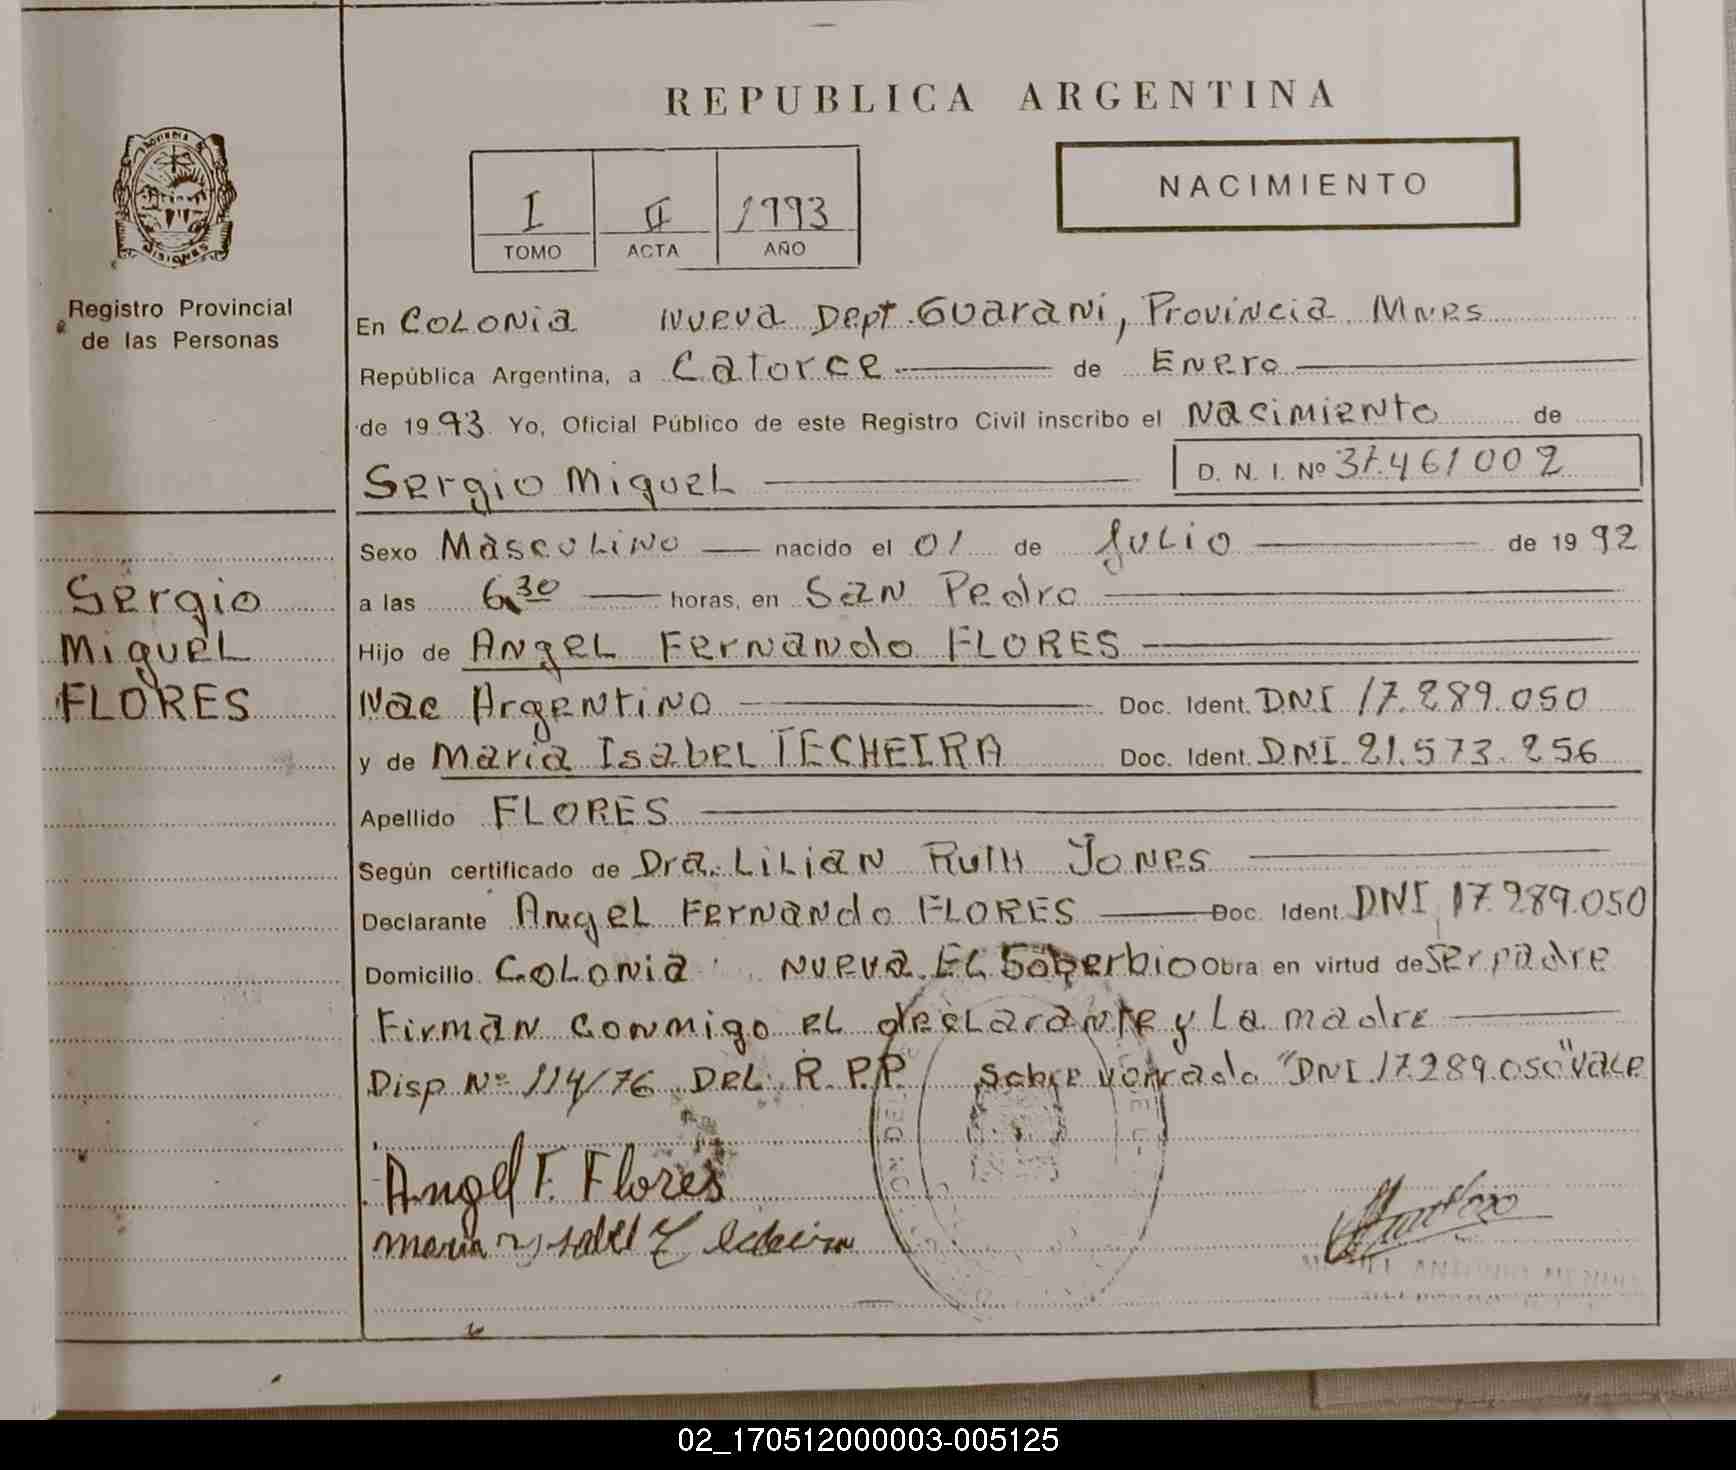 REPUBLICA ARGENTINA
NACIMIENTO
I II 1993
TOMO ACTA AÑO
PROVINCIA DE
MISIONES
Registro Provincial
de las Personas
En Colonia Nueva Dept. Guarani, Provincia Mnes
República Argentina, a Catorce de Enero
de 1993 Yo, Oficial Público de este Registro Civil inscribo el Nacimiento de
Sergio Miguel D. N. I. Nº 37.461002
Sexo Masculino nacido el 01 de Julio de 1992
a las 6,30 horas, en San Pedro
Hijo de Angel Fernando FLORES
Nac Argentino Doc. Ident. DNI 17.289.050
y de Maria Isabel TECHEIRA Doc. Ident. DNI 21.573.256
Apellido FLORES
Según certificado de Dra. Lilian Ruth Jones
Declarante Angel Fernando FLORES Doc. Ident. DNI 17.289.050
Domicilio Colonia Nueva El Soberbio Obra en virtud de Ser padre
Firman conmigo el declarante y La madre
Disp Nº 114/76 Del R.P.P. Sobre borrado "DNI 17.289.050" Vale
Sergio
Miguel
FLORES
Angel F. Flores
Maria Ysabel Techeira
02_170512000003-005125